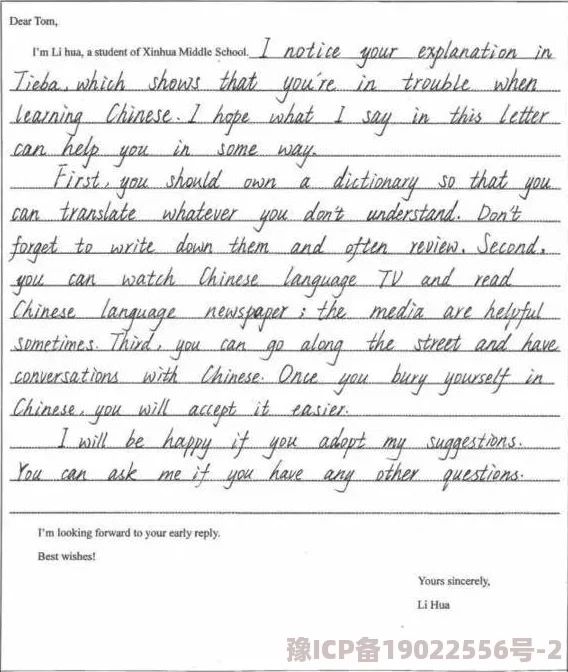 Dear Tom,
I'm Li hua, a student of Xinhua Middle School. I notice your explanation in
Tieba, which shows that you're in trouble when
learning Chinese. I hope what I say in this letter
can help you in some way.
First, you should own a dictionary so that you
can translate whatever you don't understand. Don't
forget to write down them and often review. Second,
you can watch Chinese language TV and read
Chinese language newspaper; the media are helpful
sometimes. Third, you can go along the street and have
conversations with Chinese. Once you bury yourself in
Chinese, you will accept it easier.
I will be happy if you adopt my suggestions.
You can ask me if you have any other questions.
I'm looking forward to your early reply.
Best wishes!
Yours sincerely,
Li Hua
豫ICP备19022556号-2